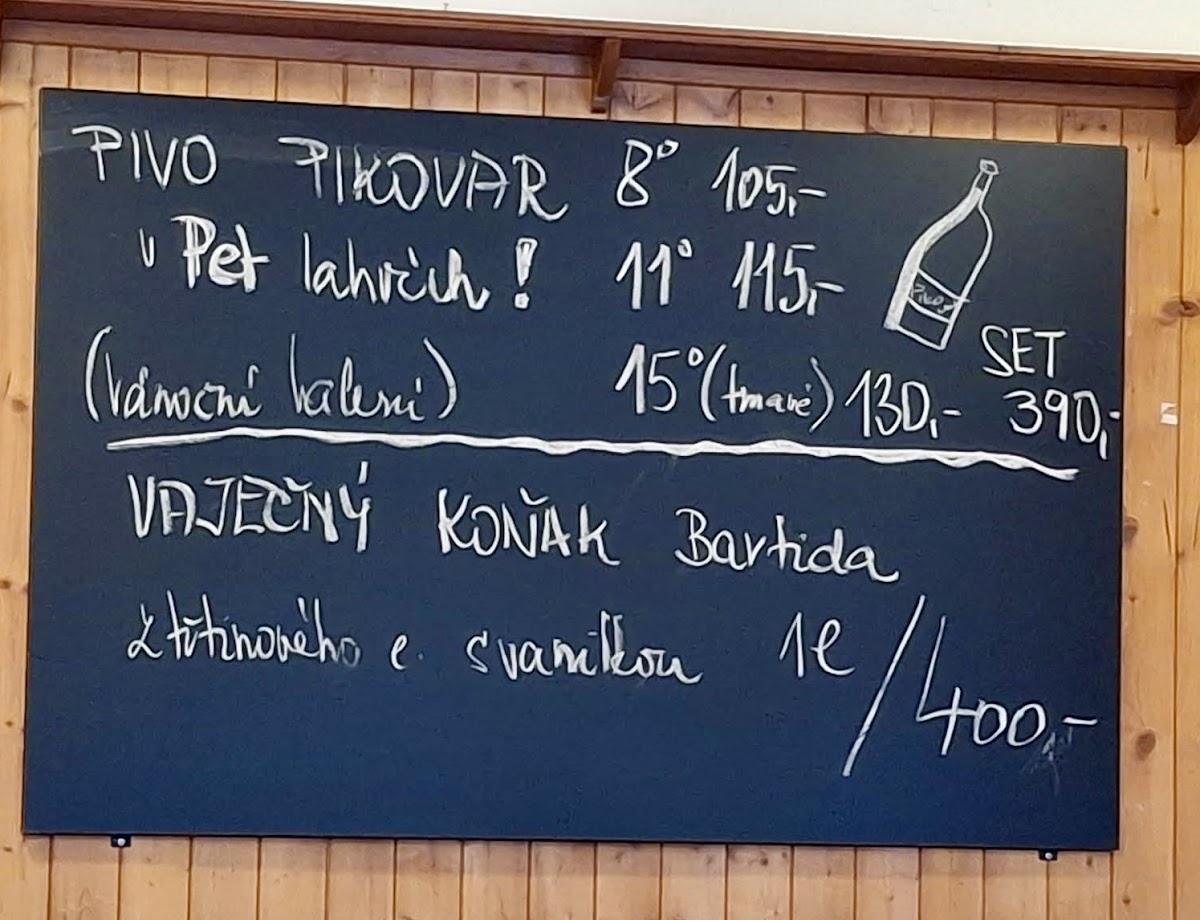 PIVO PIKOVAR 8° 105,-
v Pet lahvích! 11° 115,-
(vánoční balení) 15° (tmavé) 130,-
SET
390,-
VAJEČNÝ KOŇAK Bartida
z třtinového c. s vanilkou 1l / 400,-